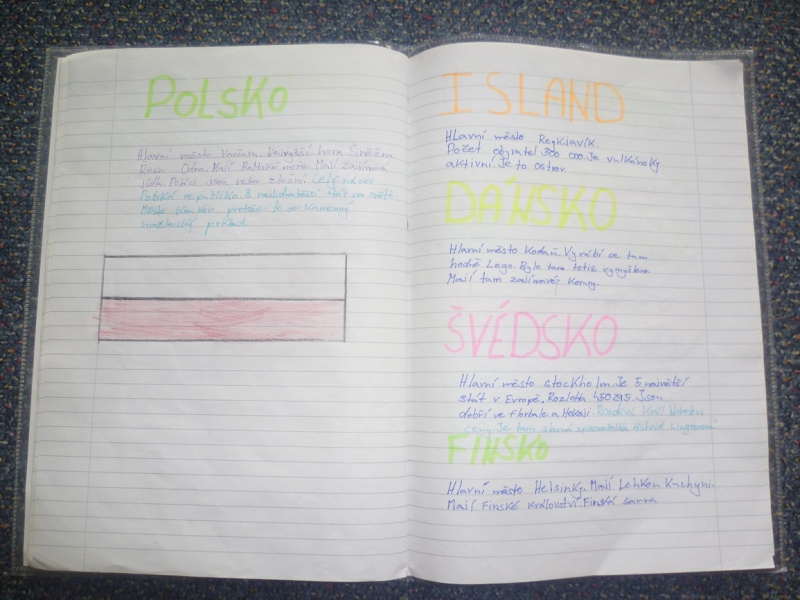 POLSKO
Hlavní město Varšava. Nejvyšší hora Sněžka
Řeka Odra. Mají Baltské moře. Mají zajímavá
jídla Poláci jsou velmi zbožní. Celý název
Polská republika. 8 nejlidnatější stát
město Krakov protože to je kamenný
umělecký poklad.
ISLAND
Hlavní město Reykjavík.
Počet obyvatel 300 000. Je vulkánicky
aktivní. Je to ostrov.
DÁNSKO
Hlavní město Kodaň. Vyrábí se tam
hodně Lego. Bylo tam totiž vymyšleno
Mají tam zajímavé Korny.
ŠVÉDSKO
Hlavní město stockholm. Je 5 největší
stát v Evropě. Rozloha 450295. Jsou
dobří ve florbale a Hokeji. král
ceny. Je tam slavná spisovatelka Astrid
FINSKO
Hlavní město Helsinky. Mají Lehkou Kuchyni.
Mají Finské království. Finská sauna